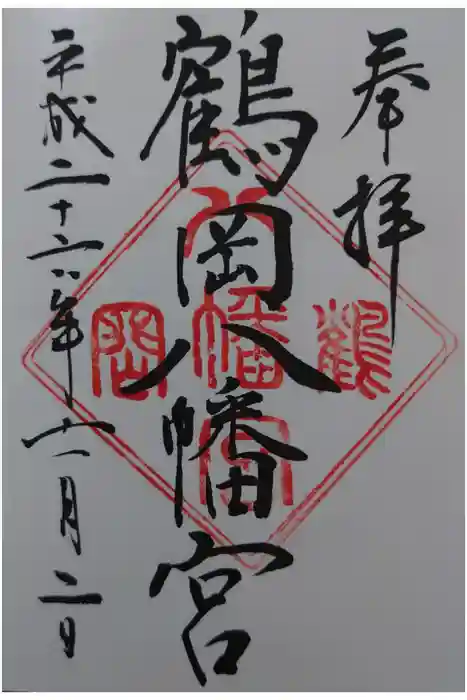 奉拝
鶴岡八幡宮
鶴岡八幡宮
平成二十六年十一月二日